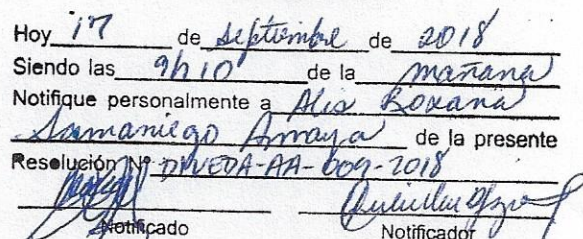 Hoy 17 de septiembre de 2018
Siendo las 9h10 de la mañana
Notifique personalmente a Alis Roxana
Samaniego Amaya de la presente
Resolución Nº DIVEDA-AA-009-2018
Notificado Notificador